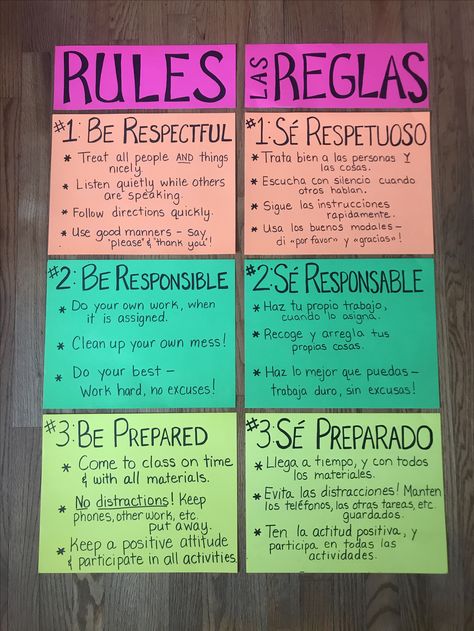 RULES
#1: BE RESPECTFUL
* Treat all people AND things
nicely.
* Listen quietly while others
are speaking.
* Follow directions quickly.
* Use good manners – say
"please" & "thank you"!
#2: BE RESPONSIBLE
* Do your own work, when
it is assigned.
* Clean up your own mess!
* Do your best –
Work hard, no excuses!
#3: BE PREPARED
* Come to class on time
& with all materials.
* No distractions! Keep
phones, other work, etc.
put away.
* Keep a positive attitude
& participate in all activities.
LAS REGLAS
#1: SÉ RESPETUOSO
* Trata bien a las personas Y
las cosas.
* Escucha con silencio cuando
otros hablan.
* Sigue las instrucciones
rapidamente.
* Usa los buenos modales –
di «por favor» y «gracias»!
#2: SÉ RESPONSABLE
* Haz tu propio trabajo,
cuando lo asigna.
* Recoge y arregla tus
propias cosas.
* Haz lo mejor que puedas –
trabaja duro, sin excusas!
#3: SÉ PREPARADO
* Llega a tiempo, y con todos
los materiales.
* Evita las distracciones! Mantén
los teléfonos, las otras tareas, etc.
guardados.
* Ten la actitud positiva, y
participa en todas las
actividades.